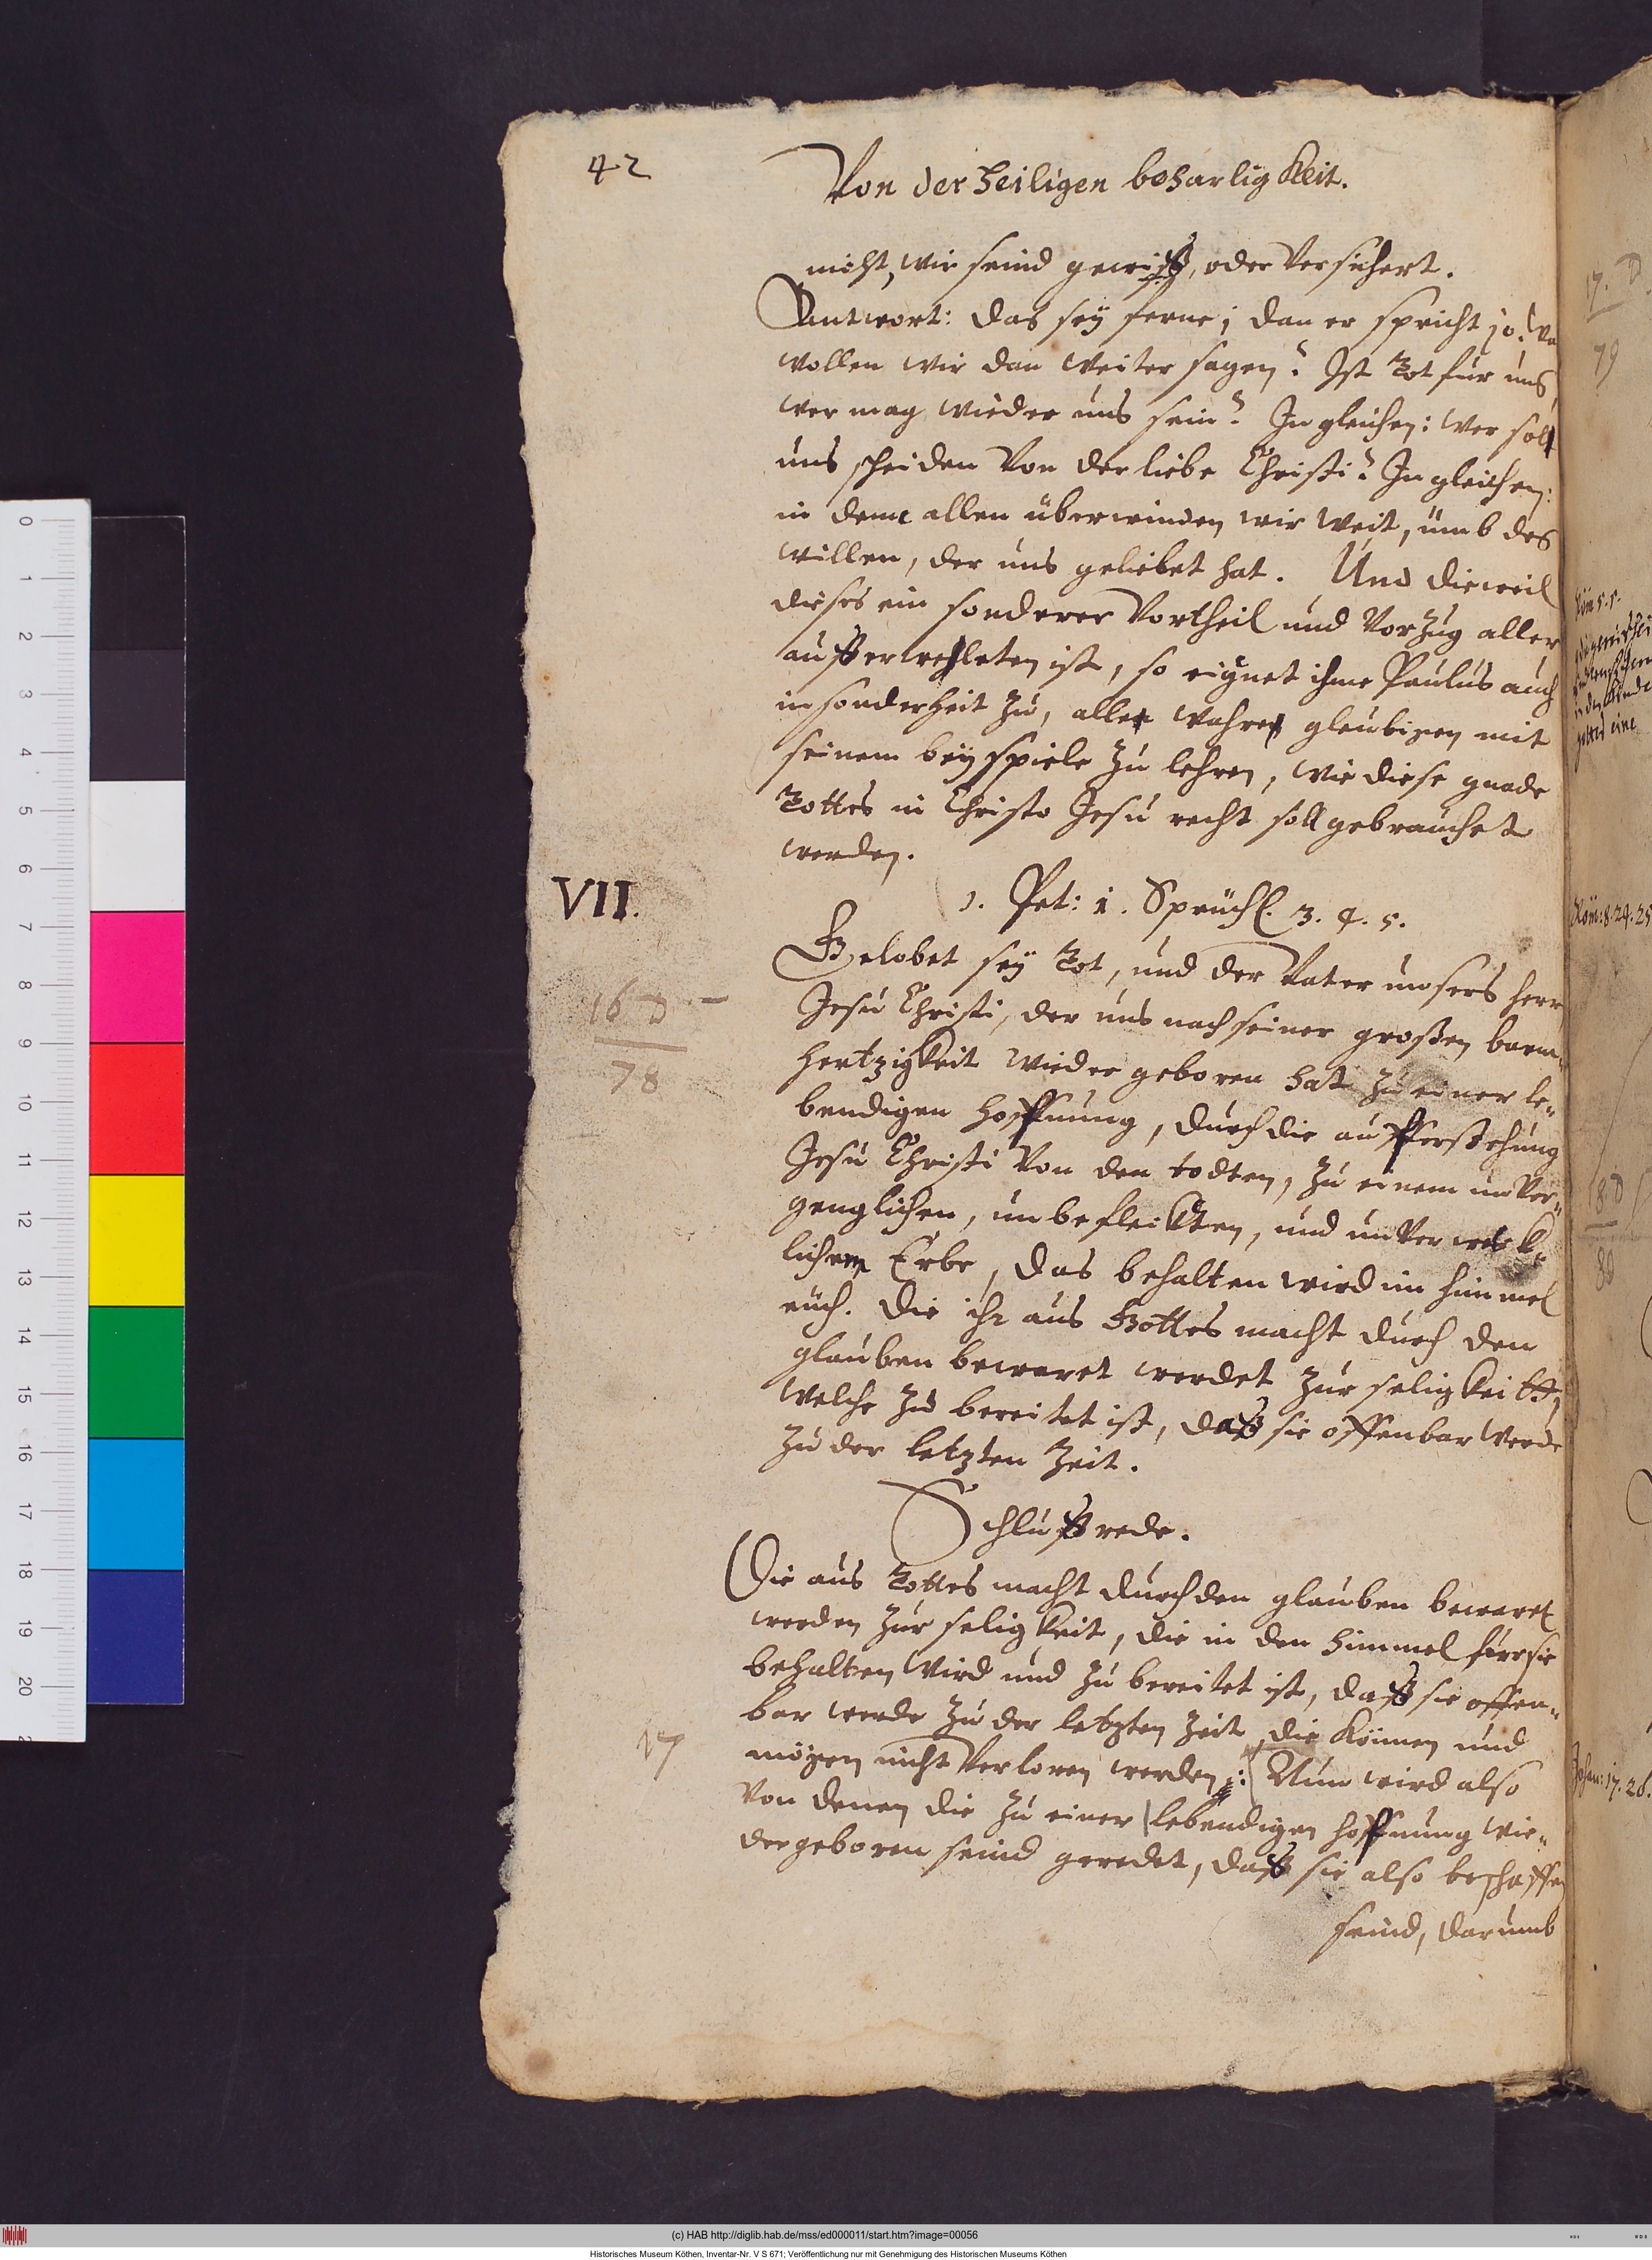 42
Von der heiligen beharligkeit.
nicht, wir seind gewiß, oder versichert.
Antwort: das seÿ ferne; dan er spricht jo: Wa
wollen wir dan weiter sagen? Ist Got für uns,
wer mag wieder uns sein? In gleichen: wer soll
uns scheiden von der liebe Christi? In gleichen:
in deme allen überwinden wir weit, umb des
willen, der uns geliebet hat. Und dieweil
dieses ein sonderer vortheil und vorzug aller
außerwehleten ist, so eignet ihme Paulus auch
insonderheit zu, alle wahre gleubigen mit
seinem beÿspiele zu lehren, wie diese gnade
Gottes in Christo Jesu recht soll gebrauchet
werden.
VII.
1. Pet: 1. Sprüchl. 3. 4. 5.
Gelobet seÿ Got, und der Vater unsers herrn
Jesu Christi, der uns nach seiner großen barm„
hertzigkeit wieder geboren hat zu einer le„
bendigen hoffnung, durch die aufferstehung
Jesu Christi von den todten, zu einem unver„
genglichen, unbeflekten, und unverwelk„
lichem Erbe, das behalten wird im himmel
euch. die ihr aus Gottes macht durch den
glauben bewaret werdet zur seligkeitt,
welche zu bereitet ist, daß sie offenbar werde
zu der letzten zeit.
16 D –
78
Schlußrede.
Die aus Gottes macht durch den glauben bewaret
werden zur seligkeit, die in den himmel für sie
behalten wird und zu bereitet ist, daß sie offen„
bar werde zu der letzten zeit, die können und
mögen nicht verloren werden: Nun wird also
von denen die zu einer lebendigen hoffnung wie„
dergeboren seind geredet, daß sie also beschaffen
17
seind, darumb
17. D
79
Röm 5.5.
gottes eine
Röm: 8. 24. 25
18 D
80
Johan: 17. 26.
0 1 2 3 4 5 6 7 8 9 10 11 12 13 14 15 16 17 18 19 20
(c) HAB http://diglib.hab.de/mss/ed000011/start.htm?image=00056
Historisches Museum Köthen, Inventar-Nr. V S 671; Veröffentlichung nur mit Genehmigung des Historischen Museums Köthen